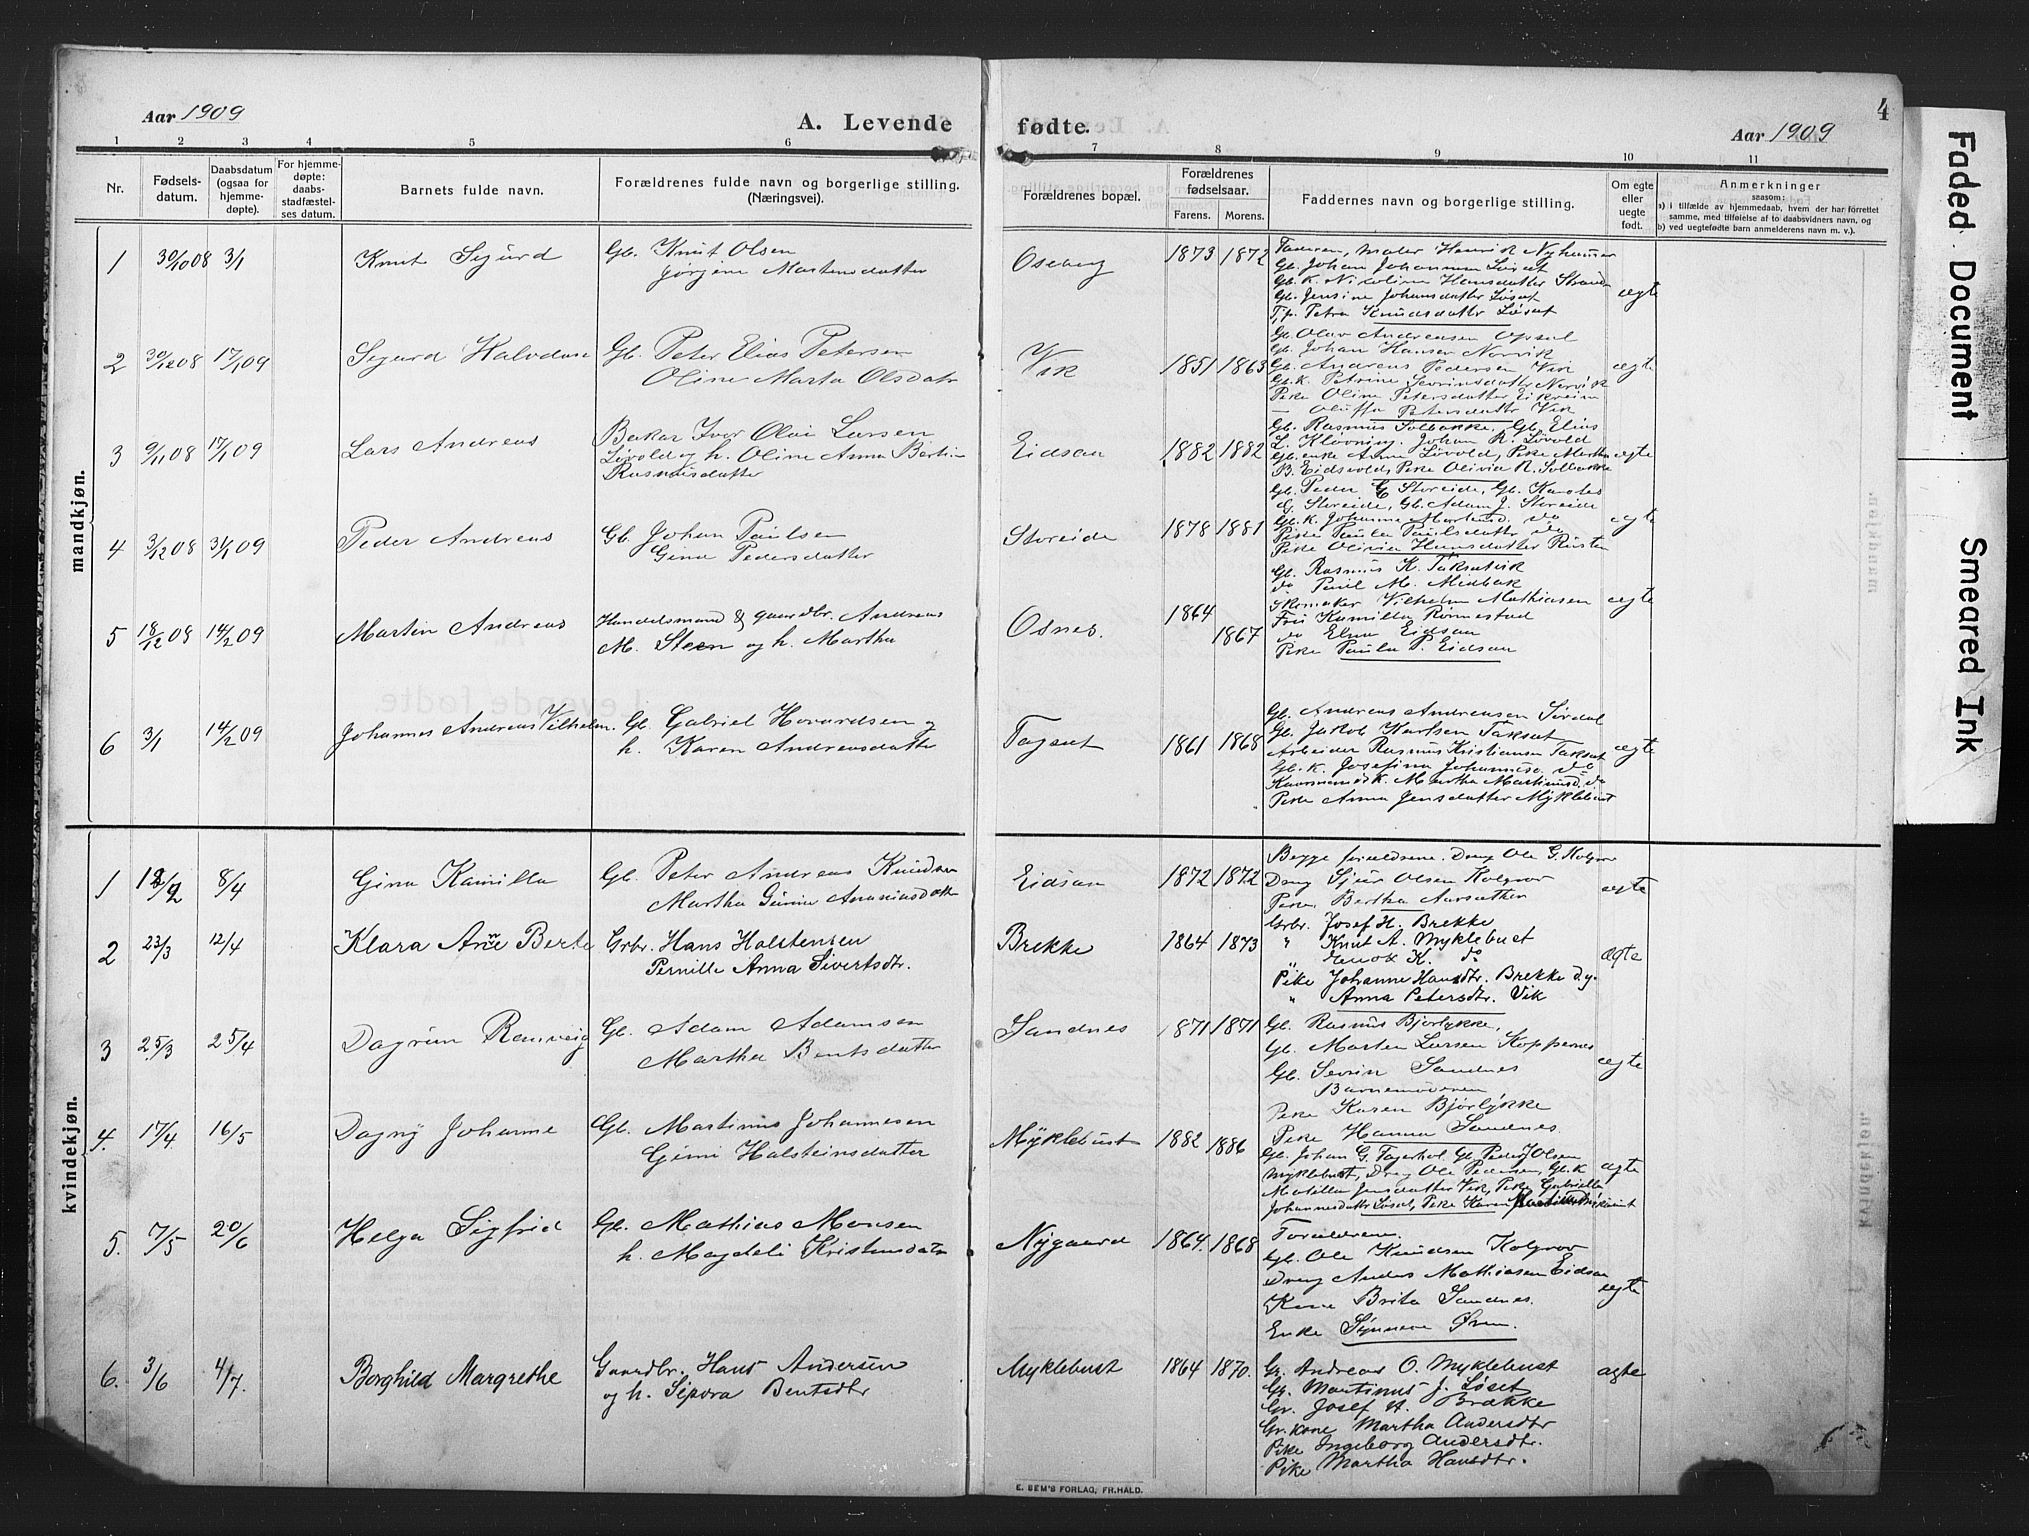 4
Aar 1909
A. Levende fødte.
Aar 1909
1 2 3 4 5 6 7 8 9 10 11
Nr.
Fødsels-
datum.
Daabsdatum
(ogsaa for
hjemme-
døpte).
For hjemme-
døpte:
daabs-
stadfæstel-
ses datum.
Barnets fulde navn.
Forældrenes fulde navn og borgerlige stilling.
(Næringsvei).
Forældrenes bopæl.
Forældrenes
fødselsaar.
Farens. Morens.
Faddernes navn og borgerlige stilling.
Om egte
eller
uegte
født.
Anmerkninger
saasom:
a) i tilfælde av hjemmedaab, hvem der har forrettet
samme, med tilføielse af to daabsvidners navn, og
b) ved uegtefødte barn anmelderens navn m. v.).
mandkjøn.
1 30/10 08 3/1 Knut Sigurd
Gb. Knut Olsen
Jørgine Martensdatter
Oseberg 1873 1872
Faderen, Maler Henrik Nyhammer
Gb. Johan Johannesen Løset
Gb.k. Nicoline Hansdatter Strand
Gb. Jensine Johansdatter Løset
Tj.p. Petra Knudsdatter Løset
ægte
2 30/12 08 17/1 09 Sigurd Halvdan
Gb. Peter Elias Petersen
Oline Marta Olsdatr
Vik 1851 1863
Gb. Olav Andreasen Opsal
Gb. Johan Hansen Norvik
Gb. Andreas Pedersen Vik
Gb.k. Petrine Sevrinsdatter Norvik
Pike Oline Petersdatter Eikreim
— Oluffa Petersdattr Vik
ægte
3 9/11 08 17/1 09 Lars Andreas
Baker Iver Olai Larsen
Løvold og h. Oline Anna Bertin
Rasmusdatter
Eidsaa 1882 1882
Gb. Rasmus Solbakke, Gb. Elias
L. Kløvning, Johan R. Løvold
Gb. enke Anna Løvold, Pike Martha
B. Eidsvold, Pike Olivia R. Solbakke
ægte
4 3/12 08 31/1 09 Peder Andreas
Gb. Johan Paulsen
Gina Pedersdatter
Storeide 1878 1881
Gb. Peder G Storeide, Gb. Karstes
G. Storeide, Gb. Adam J. Storeide
Gb.k. Johanna Martensd. do
Pike Paula Paulsdatter do
Pike Olivia Hansdatter Rusten
ægte
5 18/12 08 14/2 09 Martin Andreas
Handelsmand & gaardbr. Andreas
M. Steen og h. Martha
Osnes. 1864 1867
Gb. Rasmus K. Taksatvik
do Paul M. Midbak
Skomaker Vilhelm Mathiasen
Frú Kamilla Rønnestad
do Elna Eidsaa
Pike Paula P. Eidsaa
ægte
6 3/1 14/2 09 Johannes Andreas Vilhelm.
Gb. Gabriel Hovardsen og
h. Karen Andreasdatter
Tagsæt 1861 1868
Gb. Andreas Andreasen Sørdal
Gb. Jakob Karlsen Taksæt
Arbeider Rasmus Kristiansen Taksæt
Gb.k. Josefina Johannesd. do
Martha Martinusd. do
Pike Anna Jensdatter Myklebust
ægte
kvindekjøn.
1 18/2 8/4 Gina Kamilla
Gb. Peter Andreas Knudsen
Martha Gurine Ananiasdatter
Eidsaa 1872 1872
Begge forældrene. Dreng Ole G. Kolgrov
Dreng Sjur Olsen Kolgrov
Pike, Bertha Aarsæther
ægte
2 23/3 12/4 Klara Anne Berte
Grbr. Hans Halstensen
Pernille Anna Sivertsdtr.
Brekke 1864 1873
Grbr. Josef H. Brekke
" Knut A. Myklebust
" Enok K. do
Pike Johanne Hansdtr. Brekke d.y.
" Anna Petersdtr. Vik
ægte
3 25/3 25/4 Dagrun Ranveig
Gb. Adam Adamsen
Martha Bentsdatter
Sandnes 1871 1871
Gb. Rasmus Bjørlykke,
Gb. Marten Larsen Koppernes
Gb. Sevrin Sandnes
Barnemoderen
Pike Karen Bjørlykke
Pike Hanna Sandnes.
ægte
4. 17/4 16/5 Dagny Johanne
Gb. Martinus Johannesen
Gina Halsteinsdatter
Myklebust 1882 1886
Gb. Johan G. Fagerhol, Gb. Peder J Olsen
Myklebust, Dreng Ole Pedersen, Gb.k
Matilla Jensdatter Vik, Pike Gabriella
Johannesdattr Løset, Pike Karen
ægte
5. 7/5 20/6 Helga Sigfrid
Gb. Mathias Monsen
h. Magdeli Kristensdatr
Nygaard 1864. 1868
Forældrene.
Gb. Ole Knudsen Kolgrov
Dreng Anders Mathiasen Eidsaa
Kone Brita Sandnes.
Enke Synneva Øren.
ægte
6. 3/6 4/7. Borghild Margrethe
Gaardbr. Hans Andersen
og h. Sepora Bentsdtr
Myklebust 1864 1870.
Gr. Andreas O. Myklebust
Gr. Martinus J. Løset
Gr. Josef H. Brække
Gr. kone Martha Andersdtr
Pike Ingeborg Andersdtr.
Pike Martha Hansdtr.
ægte
E. SEM'S FORLAG, FR.HALD.
Faded Document
Smeared Ink